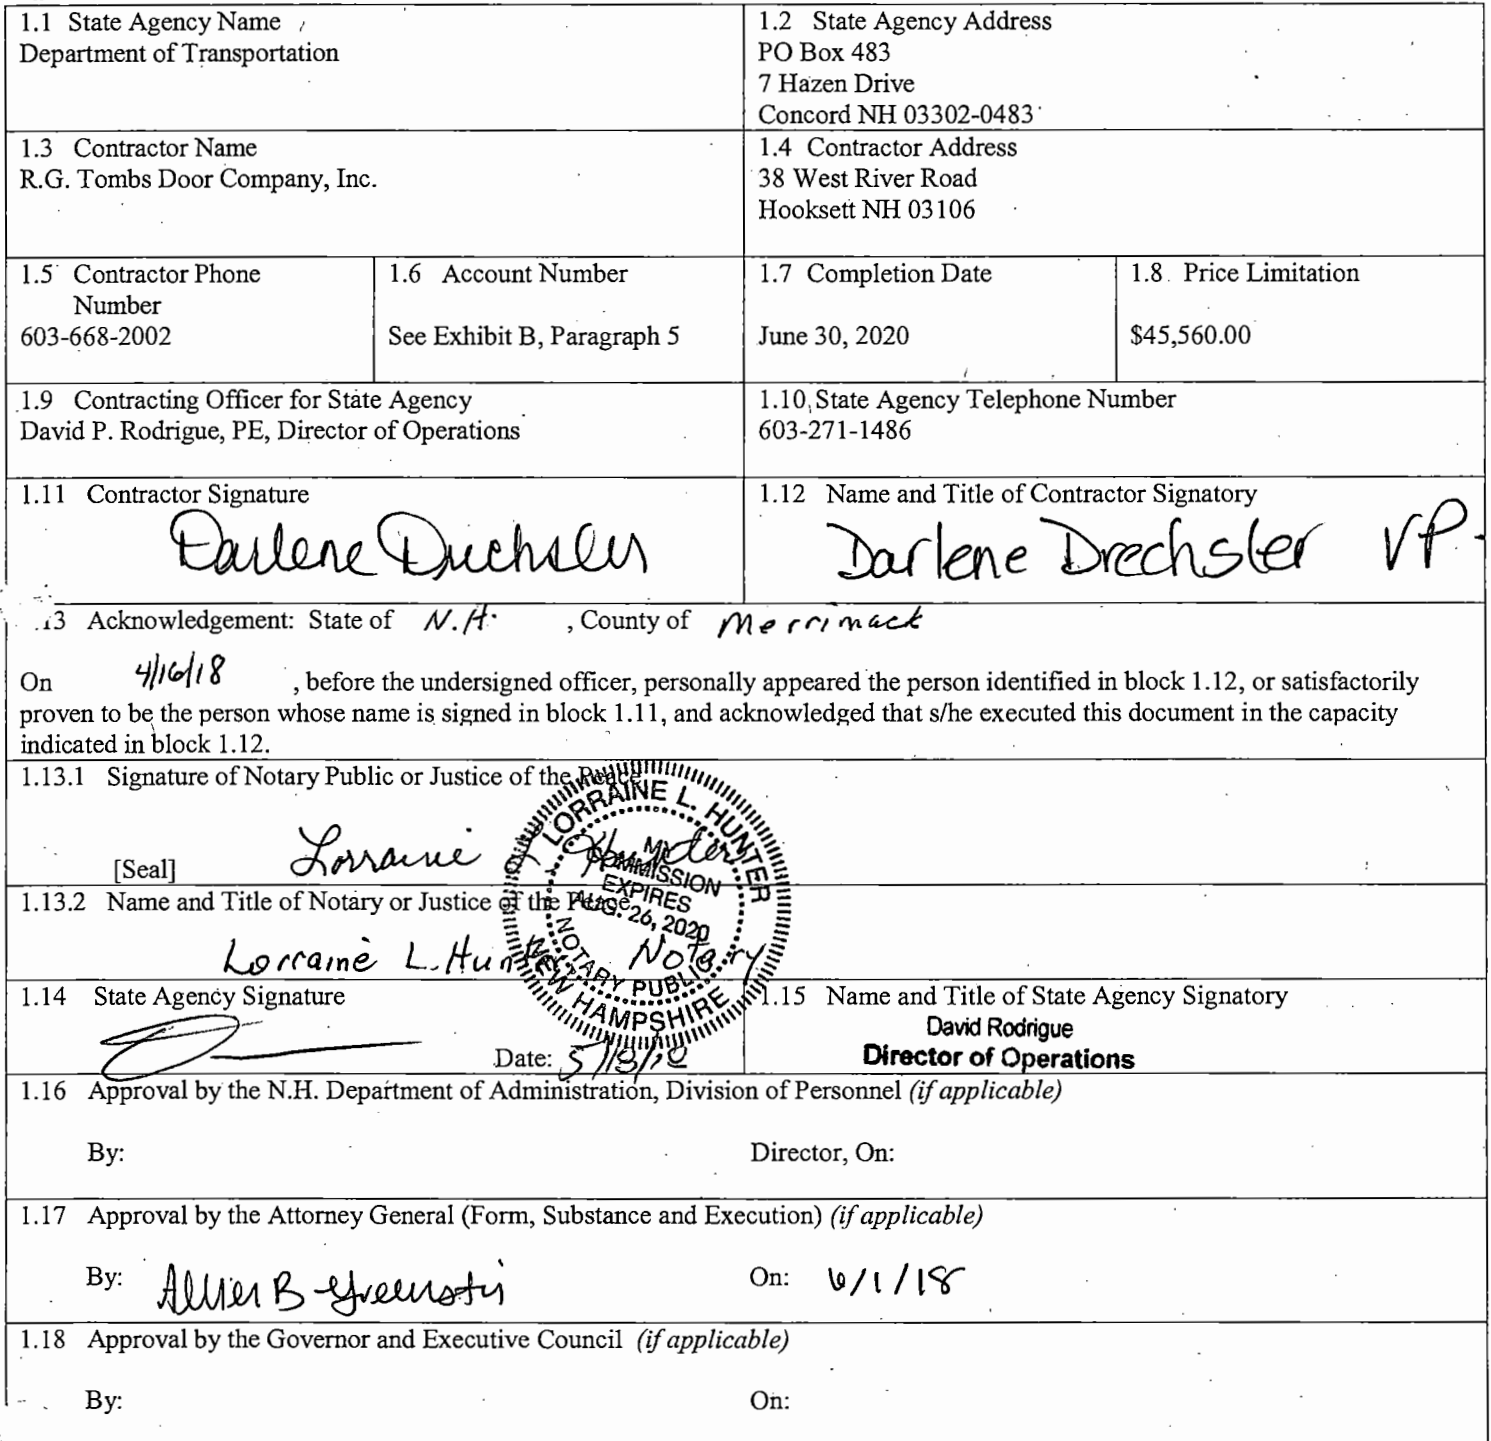 1.1 State Agency Name
Department of Transportation
1.2 State Agency Address
PO Box 483
7 Hazen Drive
Concord NH 03302-0483
1.3 Contractor Name
R.G. Tombs Door Company, Inc.
1.4 Contractor Address
38 West River Road
Hooksett NH 03106
1.5 Contractor Phone
Number
603-668-2002
1.6 Account Number
See Exhibit B, Paragraph 5
1.7 Completion Date
June 30, 2020
1.8 Price Limitation
$45,560.00
1.9 Contracting Officer for State Agency
David P. Rodrigue, PE, Director of Operations
1.10 State Agency Telephone Number
603-271-1486
1.11 Contractor Signature
Darlene Drechsler
1.12 Name and Title of Contractor Signatory
Darlene Drechsler VP.
.13 Acknowledgement: State of N.H. , County of Merrimack
On 4/16/18 , before the undersigned officer, personally appeared the person identified in block 1.12, or satisfactorily
proven to be the person whose name is signed in block 1.11, and acknowledged that s/he executed this document in the capacity
indicated in block 1.12.
1.13.1 Signature of Notary Public or Justice of the Peace
[Seal] Lorraine L Hunter
LORRAINE L. HUNTER
MY
COMMISSION
EXPIRES
AUG. 26, 2020
NOTARY PUBLIC
NEW HAMPSHIRE
1.13.2 Name and Title of Notary or Justice of the Peace
Lorraine L. Hunter Notary
1.14 State Agency Signature
Date: 5/18/18
1.15 Name and Title of State Agency Signatory
David Rodrigue
Director of Operations
1.16 Approval by the N.H. Department of Administration, Division of Personnel (if applicable)
By: Director, On:
1.17 Approval by the Attorney General (Form, Substance and Execution) (if applicable)
By: B Greenstein On: 6/1/18
1.18 Approval by the Governor and Executive Council (if applicable)
By: On: